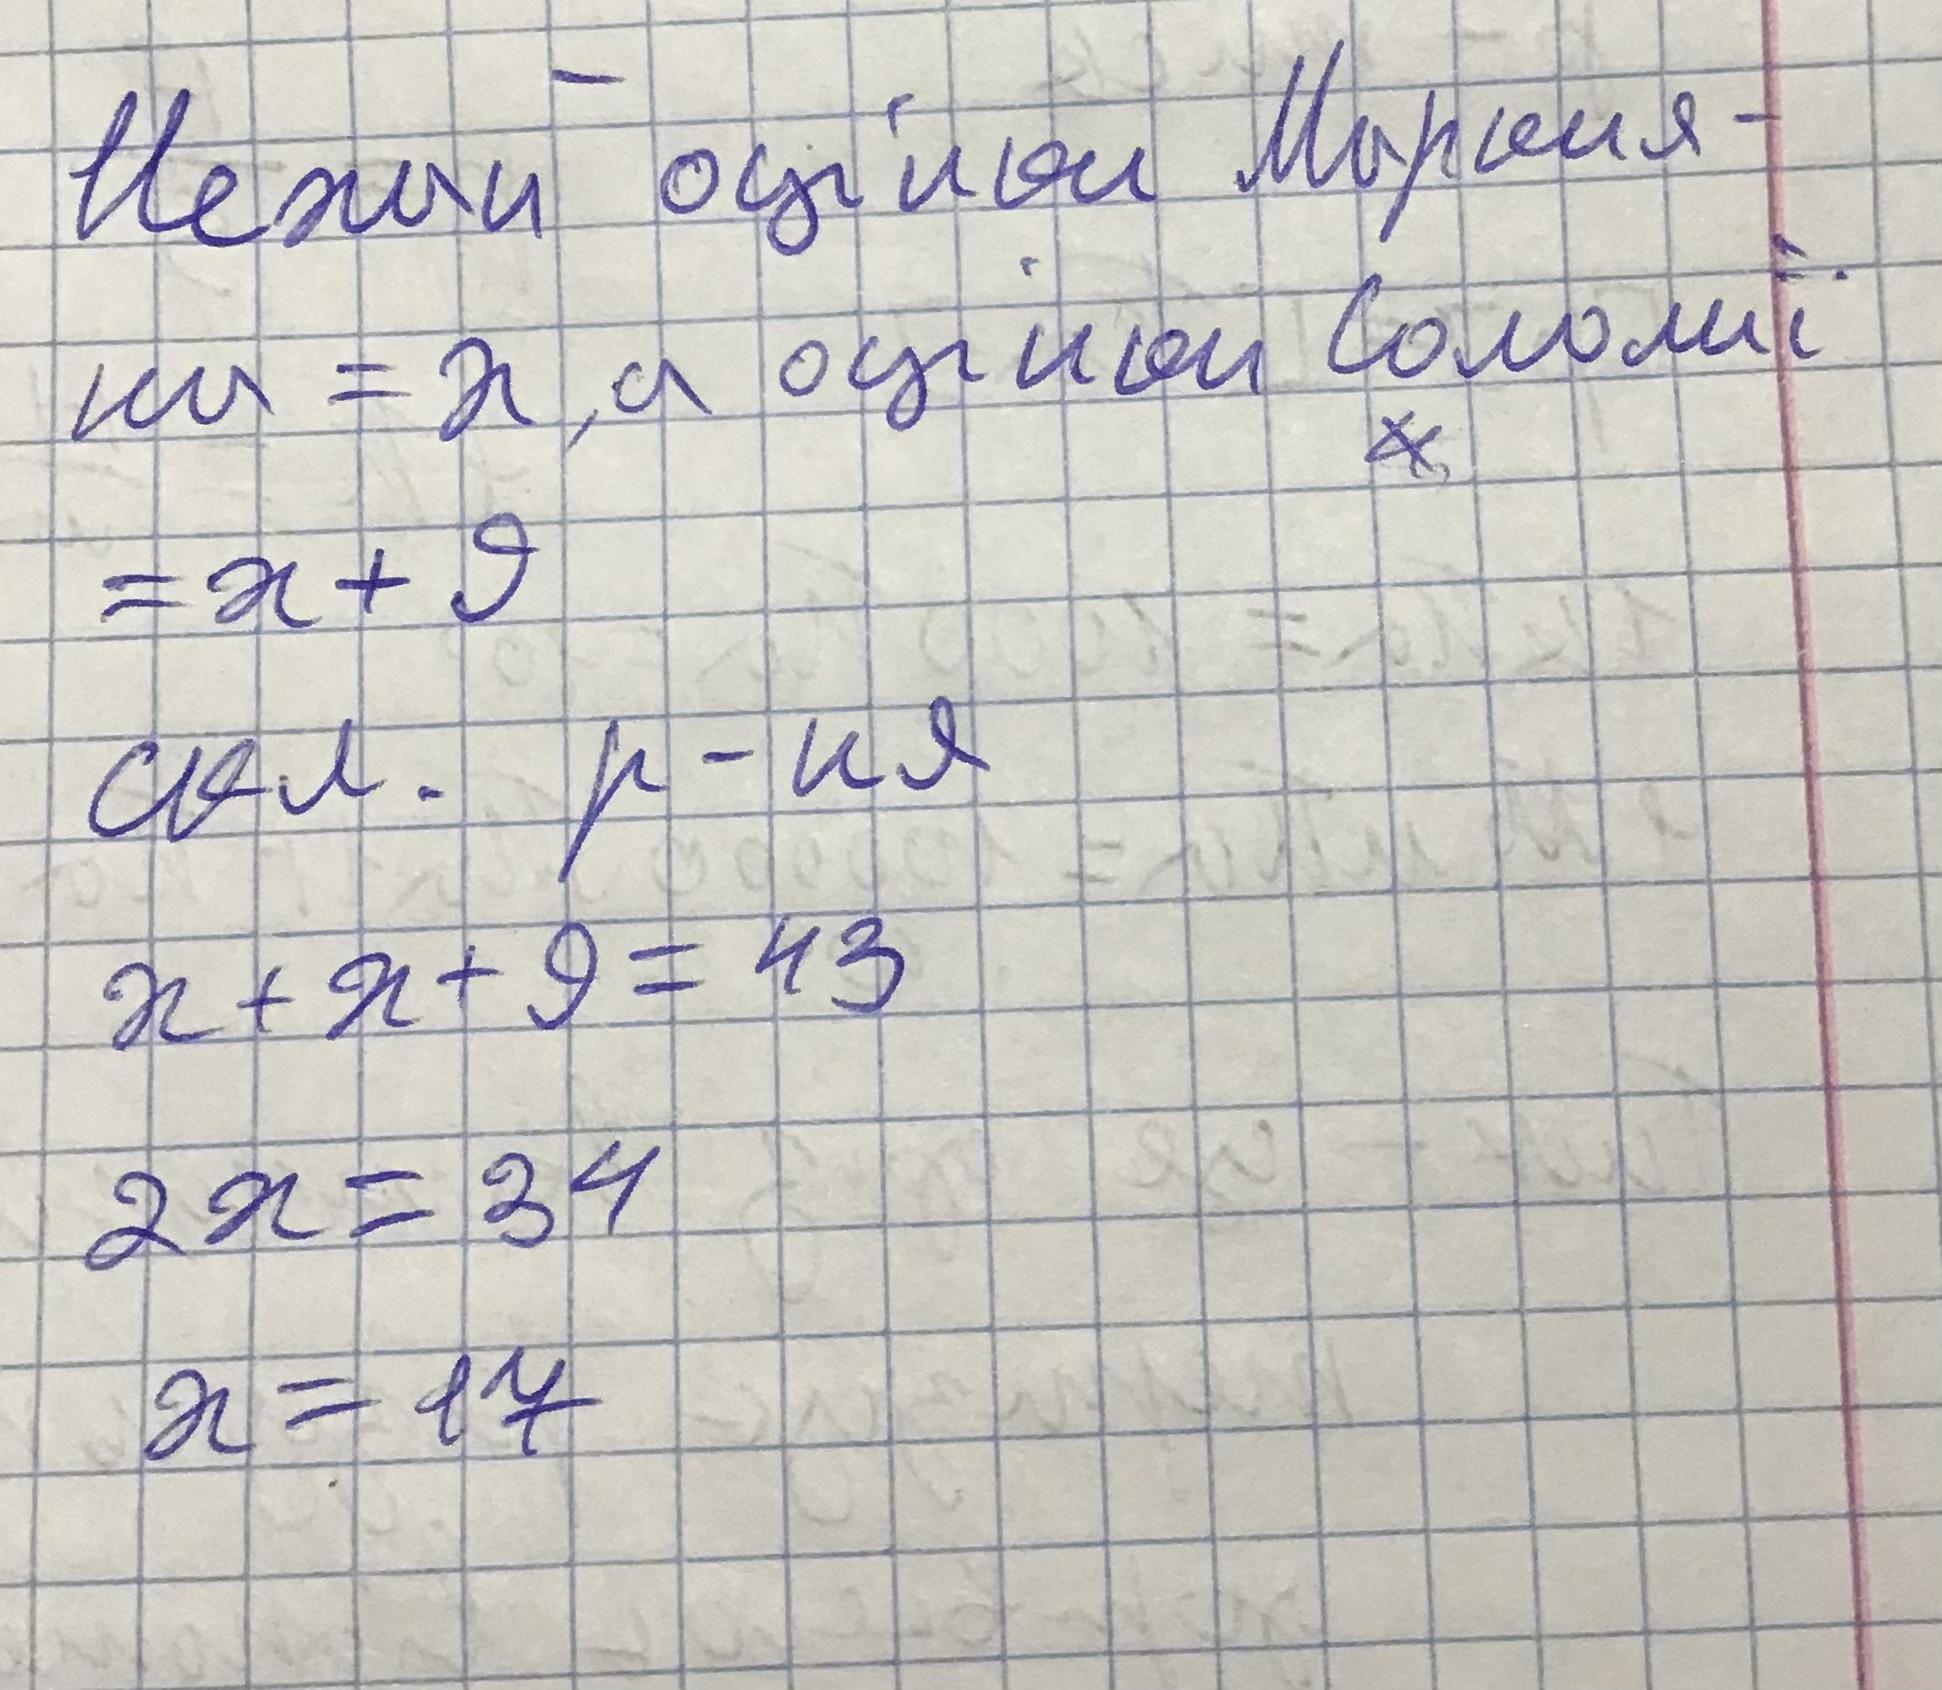 Нехай оцінки Мар'яня-
на = х, а оцінки Соломії
= х + 9
Скл. р-ня
х + х + 9 = 43
2х = 34
х = 17